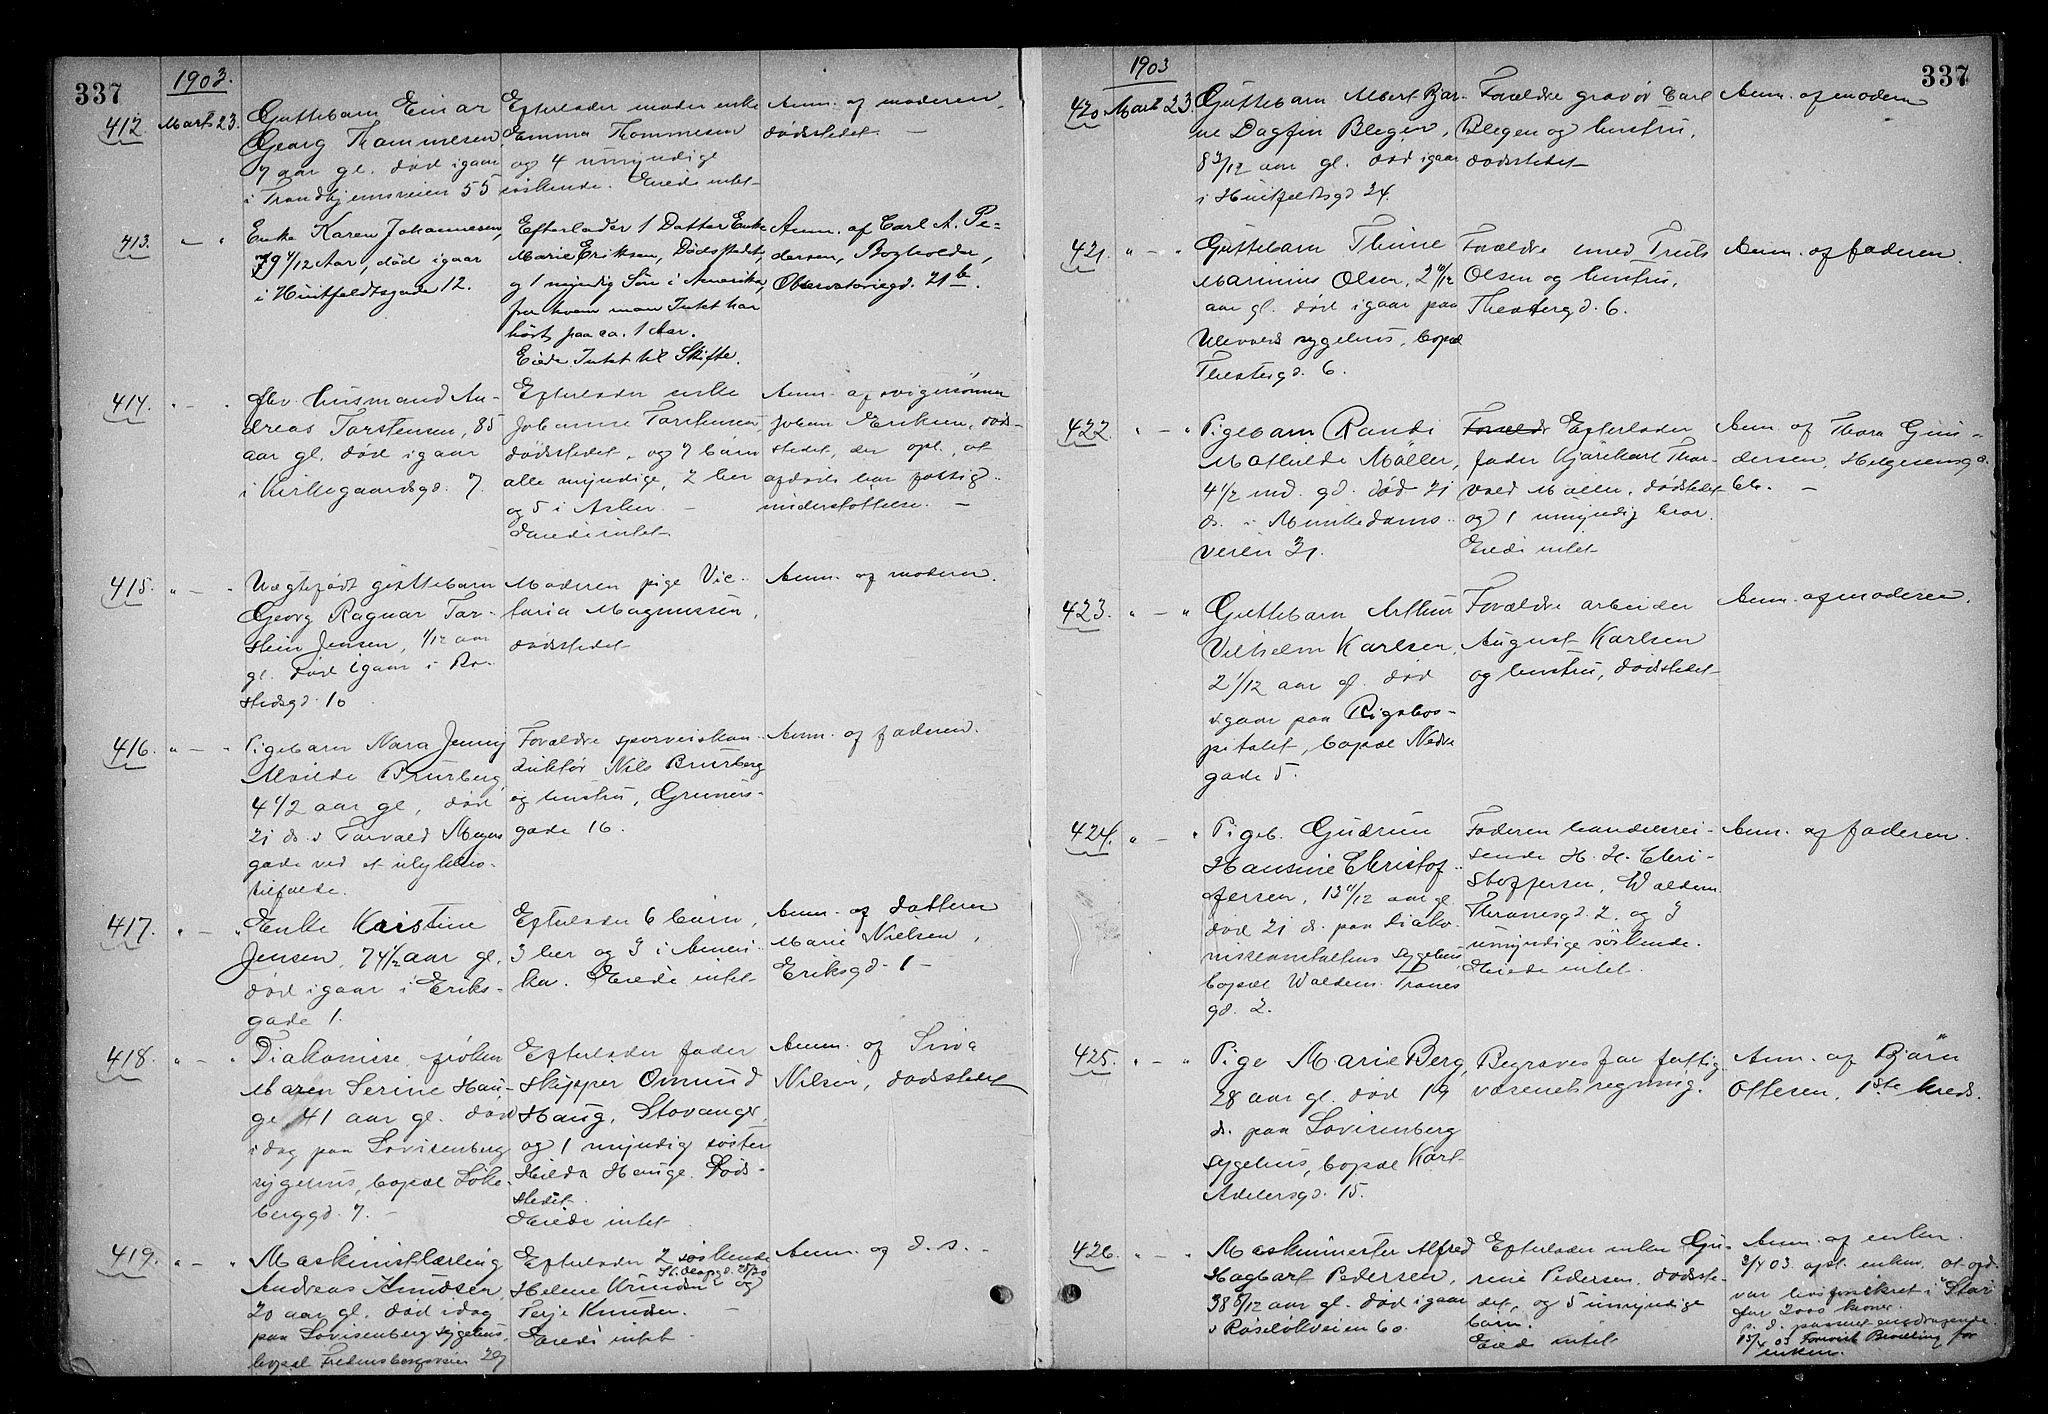 337
1903.
412. Marts 23.
Guttebarn Einar
Georg Thommesen,
7 aar gl. død igaar
i Trondhjemsveien 55
Efterlader moder enke
Emma Thommesen
og 4 umyndige
søskende. Eiede intet
Anm. af moderen,
dødstedet. —
413. " — "
Enke Karen Johannesen,
79 4/12 Aar, død igaar
i Huitfeldtsgade 12.
Efterlader 1 Datter Enke
Marie Eriksen, Dødsstedet,
og 1 myndig Søn i Amerika,
fra hvem man Intet har
hørt paa ca. 1 Aar.
Eiede Intet til Skifte.
Anm. af Carl A. Pe-
dersen, Bogholder,
Observatoriegd. 21b.
414. " — "
fhv. husmand An-
dreas Torstensen, 85
aar gl. død igaar
i Kirkegaardsgd. 7.
Efterlader enke
Johanne Torstensen
dødstedet, og 7 børn
alle myndige, 2 her
og 5 i Asker. —
Eiede intet
Anm. af svigersønnen
Johan Eriksen, død-
stedet, der opl., at
afdøde har fattig-
understøttelse. —
415. " — "
Uægtefødt guttebarn
Georg Ragnar Tor-
stein Jensen, 1/12 aar
gl. død igaar i Ro-
stedsgd. 10
Moderen pige Vic-
toria Magnussen,
dødstedet
Anm. af moderen.
416. " — "
Pigebarn Nora Jenny
Alvilde Brurberg,
4 1/2 aar gl., død
21 ds. i Torvald Meyers
gade ved et ulykkes-
tilfælde.
Forældre sporveiskon-
duktør Nils Brurberg
og hustru, Grüners-
gade 16.
Anm. af faderen.
417. " — "
Enke Kristine
Jensen, 74 1/2 aar gl.
død igaar i Eriks-
gade 1.
Efterlader 6 børn,
3 her og 3 i Ameri-
ka. Eiede intet
Anm. af datteren
Marie Nielsen,
Eriksgd. 1 —
418. " — "
Diakonisse frøken
Maren Serine Hau-
ge 41 aar gl. død
idag paa Lovisenberg
sygehus, bopæl Løke-
berggd. 7. —
Efterlader fader
Skipper Omund
Haug, Stavanger,
og 1 myndig søster
Hilda Hauge. Død-
stedet.
Eiede intet
Anm. af Sina
Nilsen, dødstedet
419. " — "
Maskinistlærling
Andreas Knudsen
20 aar gl. død idag
paa Lovisenberg sygehus,
bopæl Fredensborgveien 24
Efterlader 2 søskende
St. Olafsgd. 28/20
Helene Knudsen og
Terje Knudsen. —
Eiede intet
Anm. af d. s. —
337
1903
420 Marts 23
Guttebarn Albert Bar-
ne Dagfin Blegen,
8 3/12 aar gl. død igaar
i Huitfeldtsgd 24.
Forældre gravør Carl
Blegen og hustru,
dødstedet
Anm. af moderen
421. " — "
Guttebarn Thine
Marinius Olsen, 2 11/12
aar gl. død igaar paa
Ullevaals sygehus, bopæl
Theatergd. 6.
Forældre smed Truls
Olsen og hustru,
Theatergd. 6.
Anm. af faderen.
422. " — "
Pigebarn Randi
Mathilde Møller,
4 1/2 md. gl. død 21
ds. i Munkedams-
veien 31.
Forældr Efterlader
fader kjørekarl Thor-
vald Møller, dødstedet
og 1 umyndig bror.
Eiede intet
Anm. af Thora Gun-
dersen, Helgesensgd.
66. —
423. " — "
Guttebarn Arthur
Vilhelm Karlsen,
2 1/12 aar gl. død
igaar paa Rigshos-
pitalet, bopæl Nedre
gade 5.
Forældre arbeider
August Karlsen
og hustru, dødstedet
Anm. af moderen.
424. " — "
Pigeb. Gudrun
Hansine Christof-
fersen, 13 11/12 aar gl.
død 21 ds. paa Diako-
nisseanstaltens sygehus
bopæl Waldem. Tranes
gd. 2.
Faderen handelsrei-
sende H. H. Chri-
stoffersen, Waldem.
Thranesgd. 2. og 3
umyndige søskende.
Eiede intet.
Anm. af faderen.
425. " — "
Pige Marie Berg,
28 aar gl. død 19
ds. paa Lovisenberg
sygehus, bopæl Karl
Adelersgd. 15.
Begraves for fattig-
væsenets regning.
Anm. af Bjørn
Ottesen, 1ste kreds.
426. " — "
Maskinmester Alfred
Hagbart Pedersen,
38 5/12 aar gl. død igaar
i Røseløkveien 60.
Efterlader enken Gu-
rine Pedersen, dødste-
det, og 5 umyndige
børn.
Eiede intet
Anm. af enken.
3/4 03 opl. enken, at afd.
var livsforsikret i "Stor"
for 2000 kroner.
s. d. passeret ansøgende
15/4 03 Forevist Bevilling for
enken.